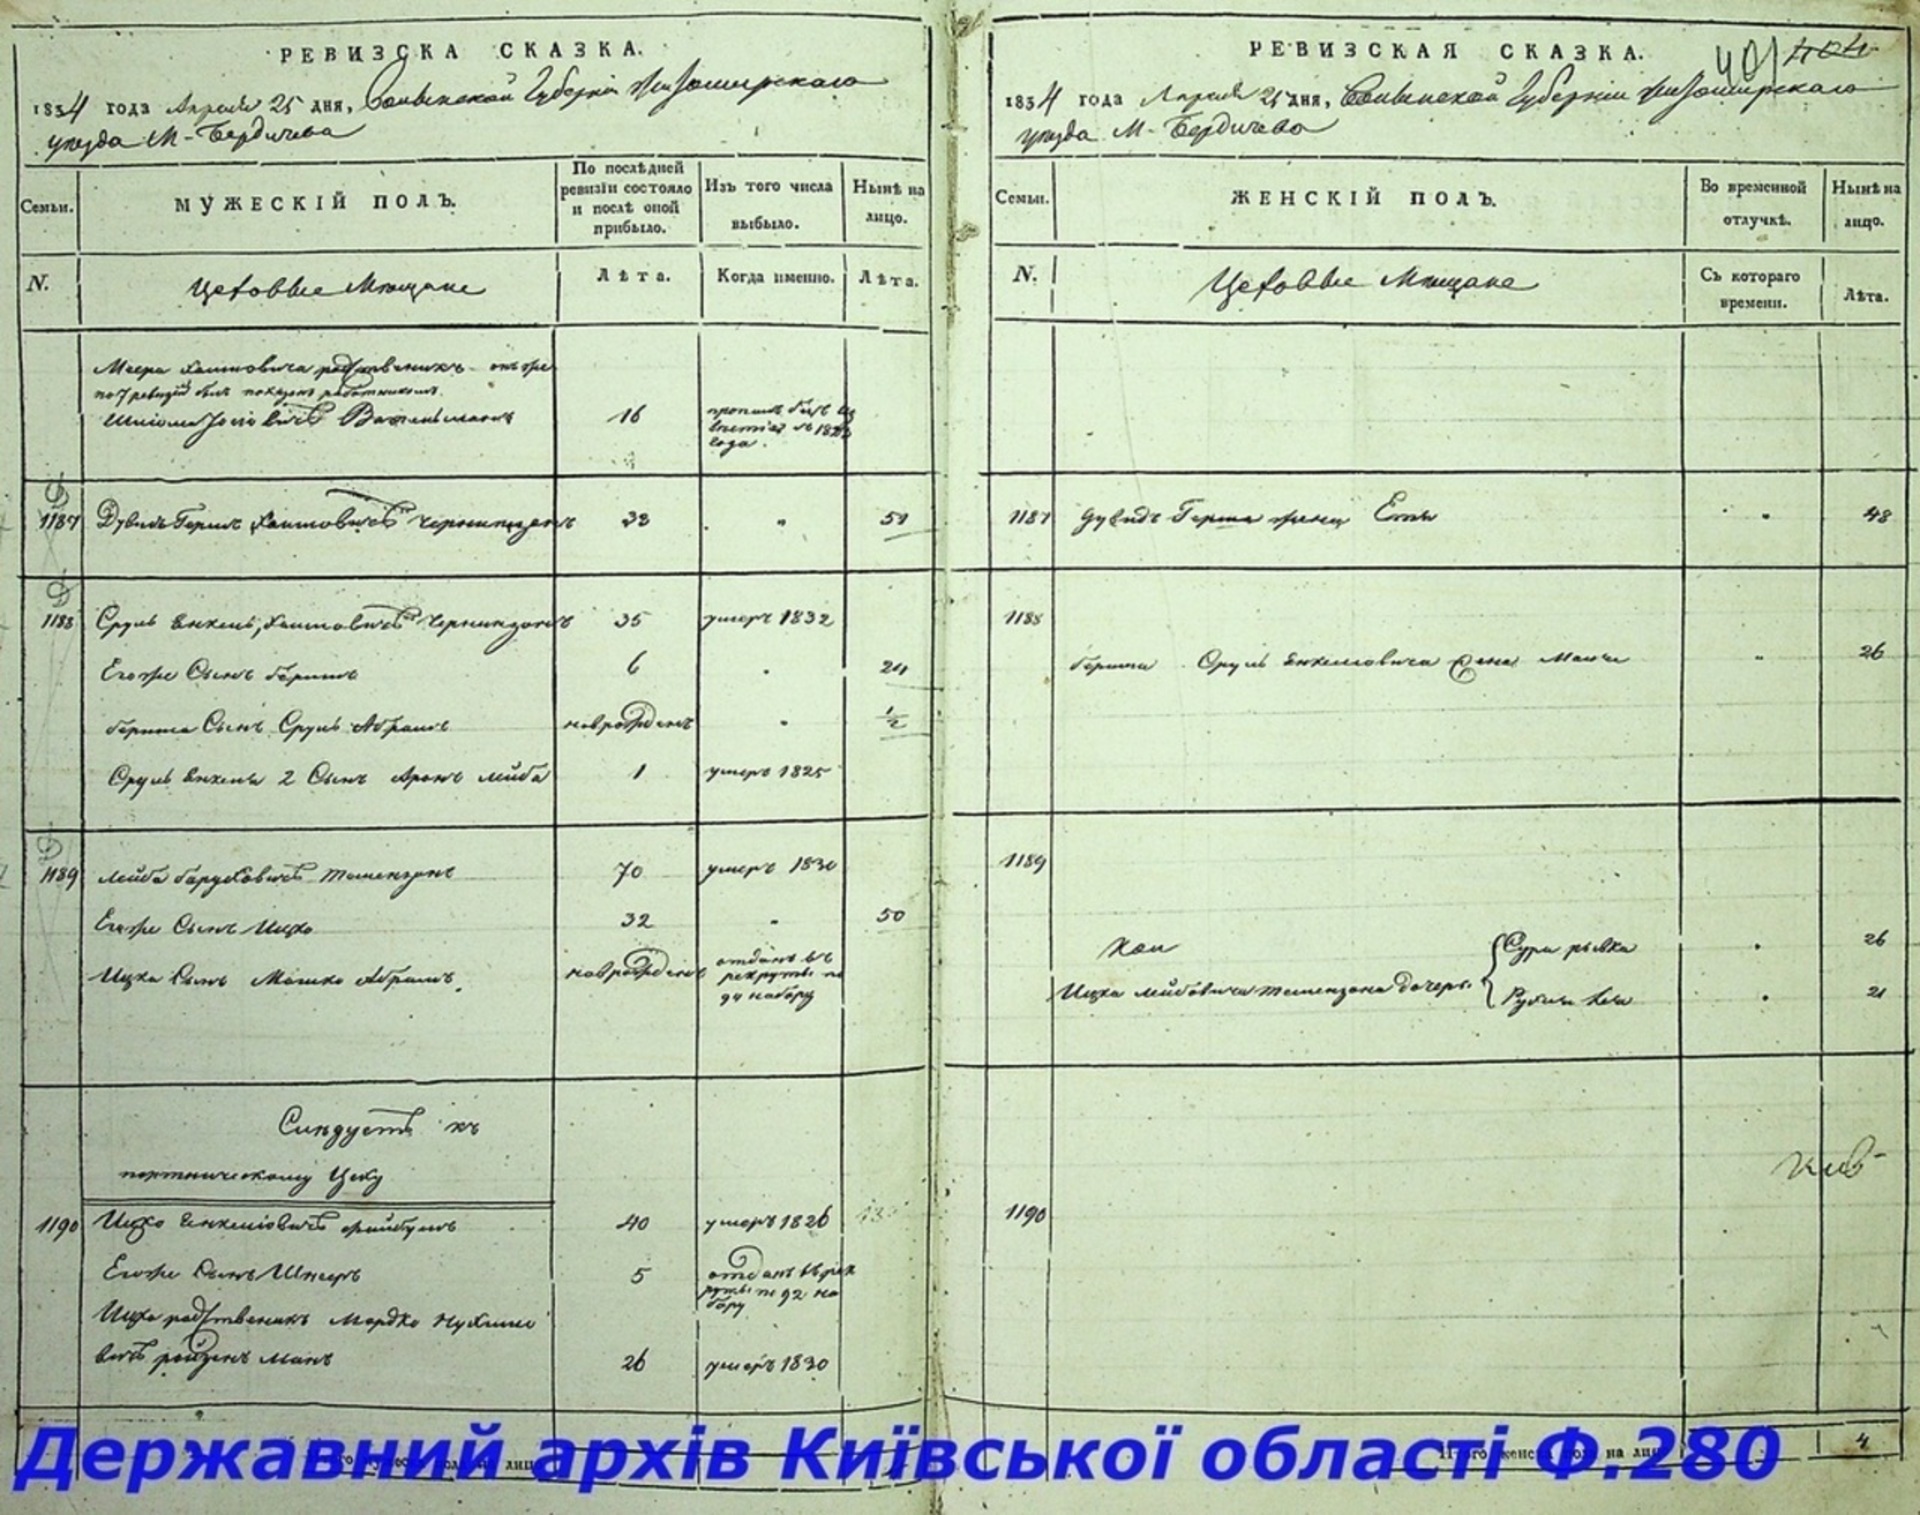 РЕВИЗСКА СКАЗКА.
1834 года Апреля 25 дня, Волынской Губерніи Житомирскаго
уезда М-Бердичева
Семьи.
МУЖЕСКІЙ ПОЛЪ.
По послѣдней ревизіи состояло и послѣ оной прибыло.
Изъ того числа выбыло.
Нынѣ на лицо.
N.
Цеховые Мещане
Лѣта.
Когда именно.
Лѣта.
Меера Хаимовича родственникъ
по 7 ревизіи былъ показанъ работникомъ
Шліома Іосіовичъ 16
1187 Дувидъ Гершъ Хаимовичъ 33 " 51
1188 Сруль Янкель Хаимовичъ 35 умеръ 1832
Егоже Сынъ Беришъ 6 " 24
Бериша Сынъ Сруль Абрамъ новорожденъ " 1/2
Сруль Янкеля 2 Сынъ Аронъ Лейба 1 умеръ 1825
1189 Лейба Баруховичъ 70 умеръ 1830
Егоже Сынъ Ицко 32 " 50
Ицка Сынъ Мошко Абрамъ новорожденъ отданъ въ рекруты по 94 набору
Слѣдуетъ къ
портническому Цеху
1190 Ицко Янкеліовичъ 40 умеръ 1826
Егоже Сынъ Шнееръ 5 отданъ въ рекруты по 92 набору
Ицка родственникъ Мордко
26 умеръ 1830
РЕВИЗСКАЯ СКАЗКА.
401 404
1834 года Апреля 25 дня, Волынской Губерніи Житомирскаго
уезда М-Бердичева
Семьи.
ЖЕНСКІЙ ПОЛЪ.
Во временной отлучкѣ.
Нынѣ на лицо.
N.
Цеховые Мещане
Съ котораго времени.
Лѣта.
1187 Дувидъ Герша жена " 48
1188
Бериша Сруль Янкелиовича жена " 26
1189
Сура Рывка " 26
Ицка Лейбовича дочеры " 21
1190
Итого женска пола на лицо 4
Державний архів Київської області Ф.280